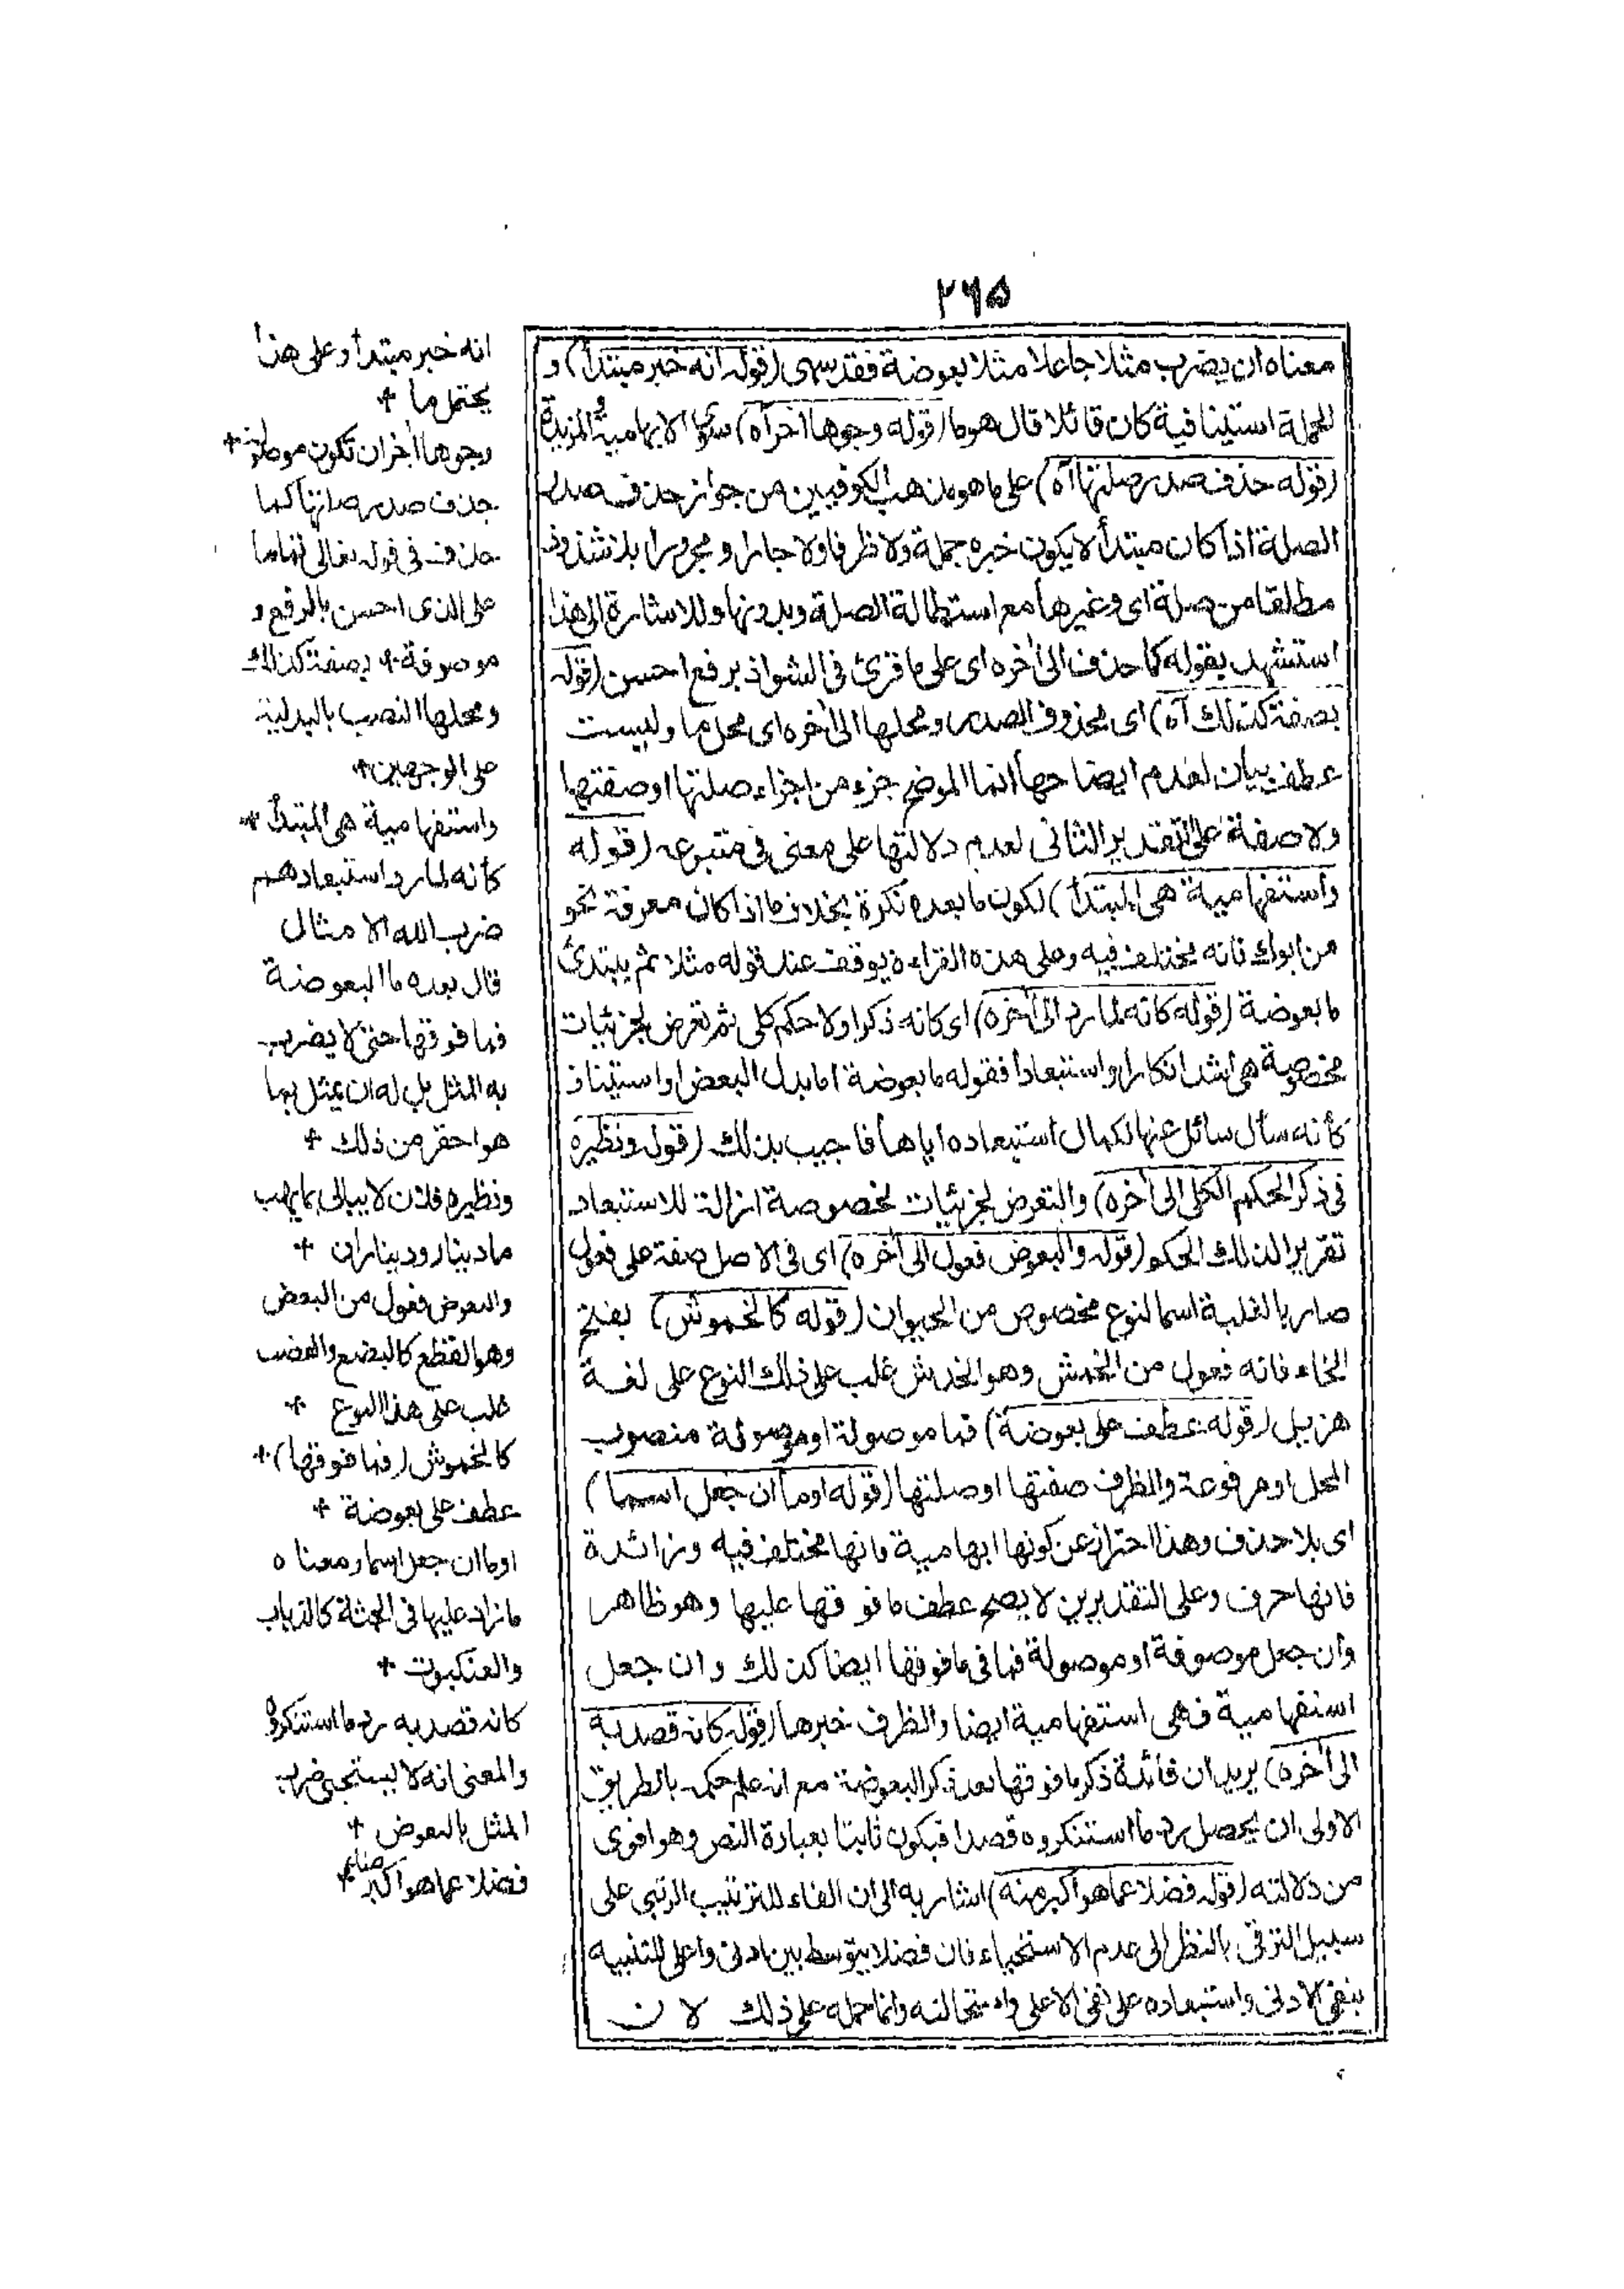 ٢٦٥
معناه ان يضرب مثلا جاعلا مثلا بعوضة فقد سهى (قوله انه خبر مبتدأ) و
الجملة استينافية كان قائلا قال هو ما (قوله وجوها اخر آه) سوى الابهامية والمزيدة
(قوله حذف صدر صلتها آه) على ما هو مذهب الكوفيين من جواز حذف صدر
الصلة اذا كان مبتدأ لا يكون خبره جملة ولا ظرفا ولا جارا ومجرورا بلا شذوذ
مطلقا من صلة اى وغيرها مع استطالة الصلة وبدونها وللاشارة الى هذا
استشهد بقوله كما حذف الى آخره اى على ما قرئ فى الشواذ برفع احسن (قوله
بصفة كذلك آه) اى محذوف الصدر ومحلها الى آخره اى محل ما وليست
عطف بيان لعدم ايضاحها انما الموضح جزء من اجزاء صلتها او صفتها
ولا صفة على التقدير الثانى لعدم دلالتها على معنى فى متبوعه (قوله
واستفهامية هى المبتدأ) لكون ما بعده نكرة بخلاف ما اذا كان معرفة نحو
من ابوك فانه يختلف فيه وعلى هذه القراءة يوقف عند قوله مثلا ثم يبتدئ
ما بعوضة (قوله كانه لما رد الى آخره) اى كانه ذكر اولا حكم كلى ثم تعرض لجزئيات
مخصوصة هى اشد انكارا واستبعادا فقوله ما بعوضة اما بدل البعض او استيناف
كأنه سأل سائل عنها لكمال استبعاده اياها فاجيب بذلك (قوله ونظيره
فى ذكر الحكم الكلى الى آخره) والتعرض لجزئيات مخصوصة ازالة للاستبعاد
تقريرا لذلك الحكم (قوله والبعوض فعول الى آخره) اى فى الاصل صفة على فعول
صار بالغلبة اسما لنوع مخصوص من الحيوان (قوله كالخموش) بفتح
الخاء فانه فعول من الخمش وهو الخدش غلب على ذلك النوع على لغة
هزيل (قوله عطف على بعوضة) فما موصولة او موصوفة منصوب
المحل او مرفوعة والظرف صفتها او صلتها (قوله او ما ان جعل اسما)
اى بلا حذف وهذا احتراز عن كونها ابهامية فانها مختلف فيه وزائدة
فانها حرف وعلى التقديرين لا يصح عطف ما فوقها عليها وهو ظاهر
وان جعل موصوفة او موصولة فما فى ما فوقها ايضا كذلك وان جعل
استفهامية فهى استفهامية ايضا والظرف خبرها (قوله كانه قصد به
الى آخره) يريد ان فائدة ذكر ما فوقها بعد ذكر البعوضة مع انه علم حكمه بالطريق
الاولى ان يحصل رد ما استنكروه قصدا فيكون ثابتا بعبارة النص وهو اقوى
من دلالته (قوله فضلا عما هو اكبر منه) اشار به الى ان الفاء للترتيب الرتبى على
سبيل الترقى بالنظر الى عدم الاستحياء فان فضلا يتوسط بين ادنى واعلى للتنبيه
بنفى الادنى واستبعاده على نفى الاعلى واستحالته وانما حمله على ذلك لان
انه خبر مبتدأ وعلى هذا
يحتمل ما +
وجوها اخر ان تكون موصولة +
حذف صدر صلتها كما
حذف فى قوله تعالى تماما
على الذى احسن بالرفع و
موصوفة + بصفة كذلك
ومحلها النصب بالبدلية
على الوجهين +
واستفهامية هى المبتدأ +
كأنه لما رد استبعادهم
ضرب الله الامثال
قال بعده ما البعوضة
فما فوقها حتى لا يضرب
به المثل بل له ان يمثل بما
هو احقر من ذلك +
ونظيره فلان لا يبالى بما يهب
ما دينار ودينارات +
والبعوض فعول من البعض
وهو القطع كالبضع والعضب
غلب على هذا النوع +
كالخموش (فما فوقها) +
عطف على بعوضة +
او ما ان جعل اسما ومعناه
ما زاد عليها فى الجثة كالذباب
والعنكبوت +
كانه قصد به رد ما استنكروه
والمعنى انه لا يستحيى ضرب
المثل بالبعوض +
فضلا عما هو اكبر +